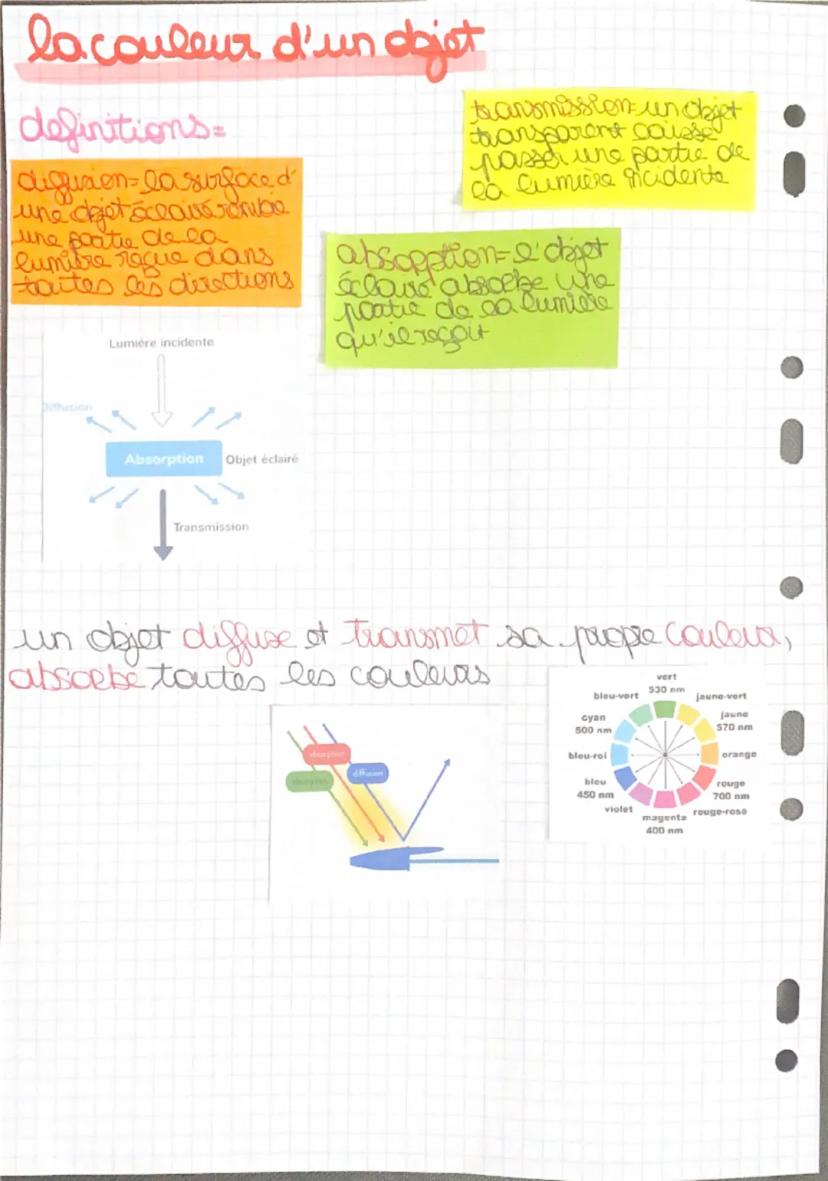 la couleur d'un objet
definitions=
transmission= un objet
transparent laisse
passer une partie de
la lumière incidente
diffusion= la surface d'
une objet éclairé
une partie de la
lumière reçue dans
toutes les directions
absorption= l'objet
éclairé absorbe une
partie de la lumière
qu'il reçoit
Lumière incidente
Diffusion
Absorption
Objet éclairé
Transmission
un objet diffuse et transmet sa propre couleur,
absorbe toutes les couleurs
vert
530 nm
bleu-vert
jaune-vert
cyan
500 nm
jaune
570 nm
bleu-roi
orange
bleu
450 nm
rouge
700 nm
violet
rouge-rose
magenta
400 nm
absorption
absorption
diffusion